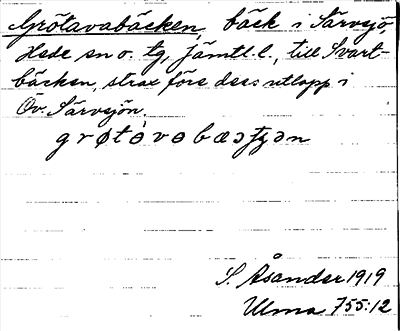 Grötavabäcken, bäck i Särvsjö,
Hede sn o. tg, Jämtl. l., till Svart-
bäcken, strax före dess utlopp i
Öv. Särvsjön.
grøtávabæɔtʒən
S. Åsander 1919
Ulma 755:12